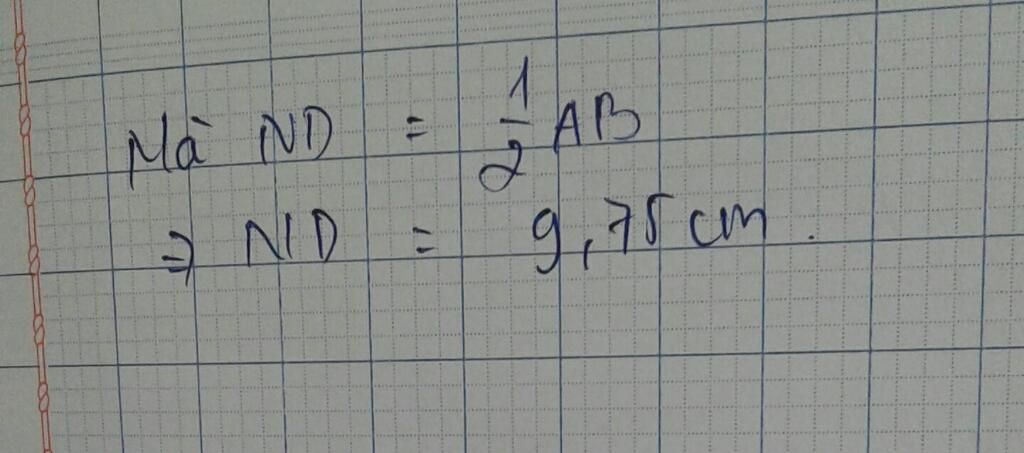 Mà ND = 1/2 AB
⇒ ND = 9,75 cm.